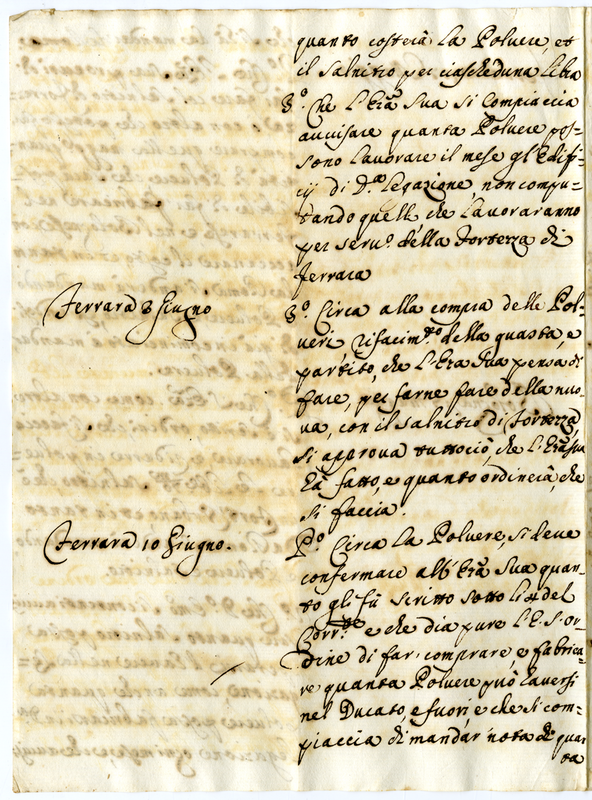 quanto costerà La Polvere et
il Salnitro per ciascheduna Libra
3.º Che L'Emã Sua si Compiaccia
avvisare quanta Polvere pos=
sono Lavorare il mese gl'Edifi=
cij di D.ª Legazione, non compu=
tando quelli che Lavoraranno
per serv.º della Fortezza di
Ferrara
Ferrara 3 Giugno
3.º Circa alla compra delle Pol=
veri risacim.to della guasta, e
partito, che L'Emã Sua pensa di
fare, per farne fare della nuo=
va, con il Salnitro di Fortezza
Si approva tuttociò, che L'Emã Sua
hà fatto, e quanto ordinerà, che
si faccia.
Ferrara 10 Giugno.
P.º Circa La Polvere, si deve
confermare all'Emã Sua quan=
to gli fù scritto sotto li 4 del
Corr.te e che dia pure L'E.S. or=
dine di far, comprare, e fabrica=
re quanta Polvere può haversi
nel Ducato, e fuori, e che si com=
piaccia di mandar nota di quan
ta